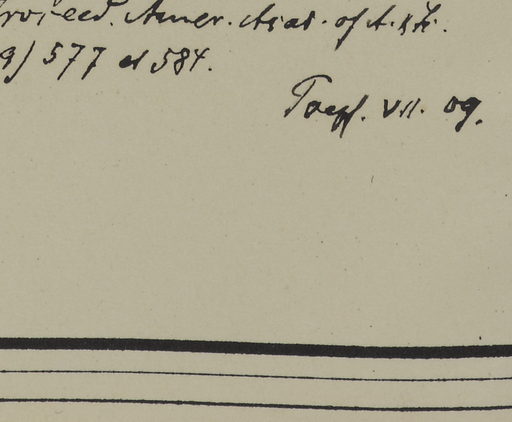 Proceed. Amer. Acad. of A. & Sc.
9) 577 et 584.
Toepf. VII. 09.